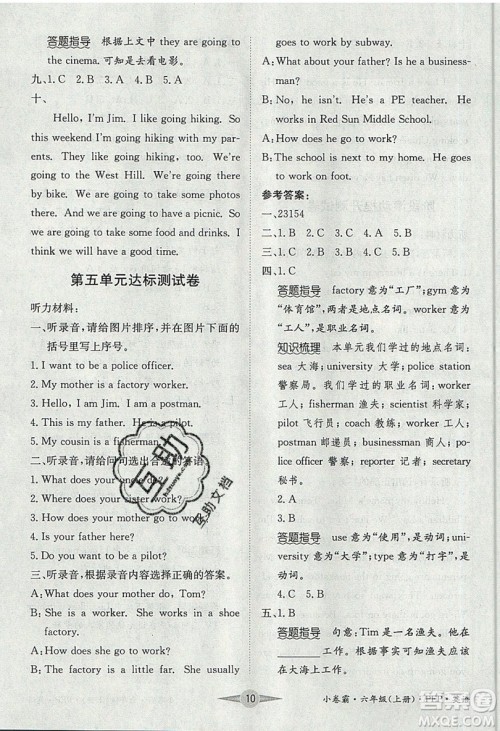 答题指导 根据上文中 they are going
to the cinema. 可知是去看电影。
九、1. C 2. B 3. D 4. B 5. A
十、
Hello, I'm Jim. I like going hiking. So
this weekend I'm going hiking with my par-
ents. We are going hiking by bus. We are
going to the West Hill. We are going to
climb mountains. It's going to be sunny. So
we are going to have a picnic. So we are
going to take some food and drinks. I
think we will have a good time.
第五单元达标测试卷
听力材料：
一、听录音,请给图片排序,并在图片下面的
括号里写上序号。
1. I want to be a police officer.
2. My mother is a factory worker.
3. Hello, I am Jim. I am a postman.
4. This is my father. He is a pilot.
5. My cousin is a fisherman.
二、听录音,请给问句选出合适的答语。
1. What does your uncle do?
2. Where does your sister work?
3. How does your mother go to work?
4. Is your father here?
5. Do you want to be a pilot?
三、听录音,根据录音内容选择正确的答案。
A: What does your mother do, Tom?
B: She is a worker. She works in a shoe
factory.
A: How does she go to work?
B: The factory is a little far. She usually
goes to work by subway.
A: What about your father? Is he a business-
man?
B: No, he isn't. He's a PE teacher. He
works in Red Sun Middle School.
A: How does he go to work?
B: The school is next to my home. He goes
to work on foot.
参考答案：
一、23154
二、1. B 2. A 3. C 4. B 5. C
三、1. B 2. C 3. A 4. B 5. C
四、1. C
答题指导 factory 意为“工厂”；gym 意
为“体育馆”,两者是地点名词。worker
意为“工人”,是职业名词。
知识梳理 本单元我们学过的地点名词：
sea 大海；university 大学；police station
警察局。我们学过的职业名词：worker
工人；fisherman 渔夫；scientist 科学家；
pilot 飞行员；coach 教练；factory worker
工人；postman 邮递员；businessman 商
人；police officer 警察；reporter 记者；secretary
秘书。
2. A
答题指导 use 意为“使用”,是动词。uni-
versity 意为“大学”；type 意为“打字”,是
动词。
3. A 4. C 5. C
五、1. B
答题指导 句意：Tim 是一名渔夫。他在
______工作。由渔夫可知,渔夫应该是
在大海上工作。
10
小卷霸·六年级(上册)·PEP·英语
互助
互助文档